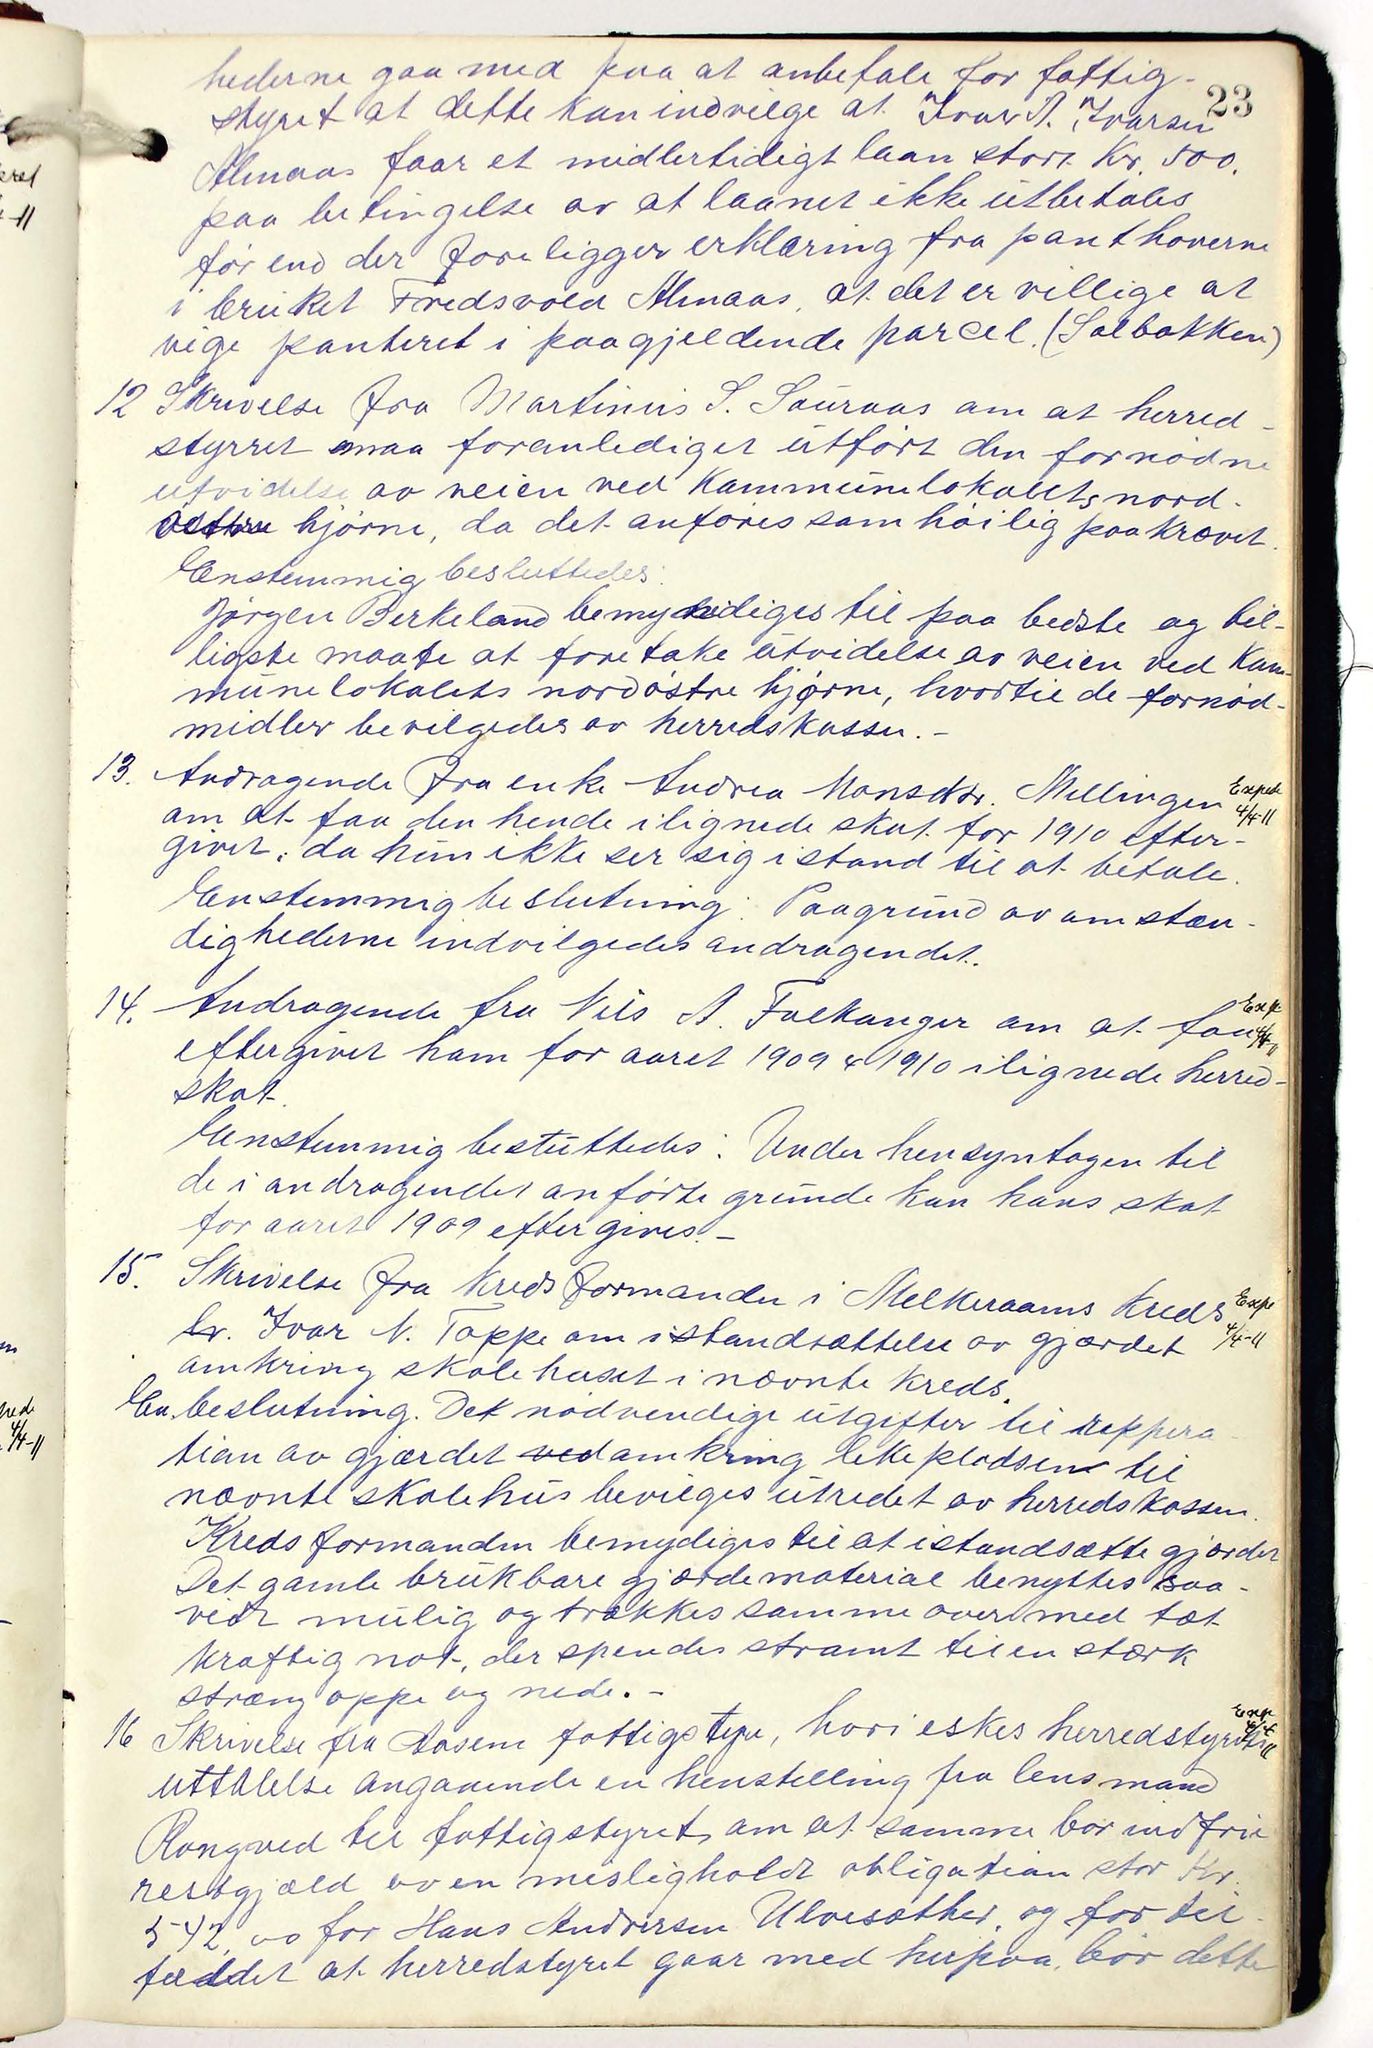 23
hederne gaa med paa at anbefale for fattig-
styret at dette kan indvilge at Ivar A. Ivarsen
Almaas faar et midlertidigt laan stort Kr. 500.
paa betingelse av at laanet ikke utbetales
før end der foreligger erklæring fra panthaverne
i bruket Fredsvold Almaas, at det er villige at
vige panteret i paagjeldende parcel. (Solbakken)
12 Skrivelse fra Martinus S. Sauraas om at herred-
styrret maa foranlediget utført den fornødne
utvidelse av veien ved Kommunelokalets nord-
østre hjørne, da det anføres som høilig paakrævet.
Enstemmig besluttedes:
Jørgen Birkeland bemyndiges til paa bedste og bil-
ligste maate at foretake utvidelse av veien ved Kom-
munelokalets nordøstre hjørne, hvortil de fornød-
midler bevilgedes av herredskassen. -
13. Andragende fra enke Andrea Monsdtr. Mellingen Exped
om at faa den hende ilignede skat for 1910 efter- 4/4-11
givet, da hun ikke ser sig istand til at betale.
Enstemmig beslutning: Paagrund av omstæn-
dighederne indvilgedes andragendet.
14. Andragende fra Nils A. Falkanger om at faa Exp
eftergivet ham for aaret 1909 & 1910 ilignede herred- 4/4-11
skat.
Enstemmig besluttedes: Under hensyntagen til
de i andragendet anførte grunde kan hans skat
for aaret 1909 eftergives. -
15. Skrivelse fra Kredsformanden i Melkeraaens Kreds Expe
hr. Ivar N. Toppe om istandsættelse av gjærdet 4/4-11
omkring skolehuset i nævnte Kreds.
En. beslutning. Det nødvendige utgifter til reppera-
tion av gjærdet ved omkring lekepladsen til
nævnte skolehus bevilges utredet av herredskassen.
Kredsformanden bemydiges til at istandsætte gjærdet
Det gamle brukbare gjærdemateriał benyttes saa-
vidt mulig og trækkes samme over med tæt
kraftig not, der spendes stramt til en stærk
stræng oppe og nede. -
16 Skrivelse fra Aasene fattigstyre, hvori eskes herredstyrets Exp 4/4-11
uttalelse angaaende en henstilling fra lensmand
Rongved til fattigstyret, om at samme bør indfrie
restgjæld av en misligholdt obligation stor Kr.
542 oo for Hans Andersen Ulvesæther, og for til-
fældet at herredstyret gaar med herpaa, bør dette